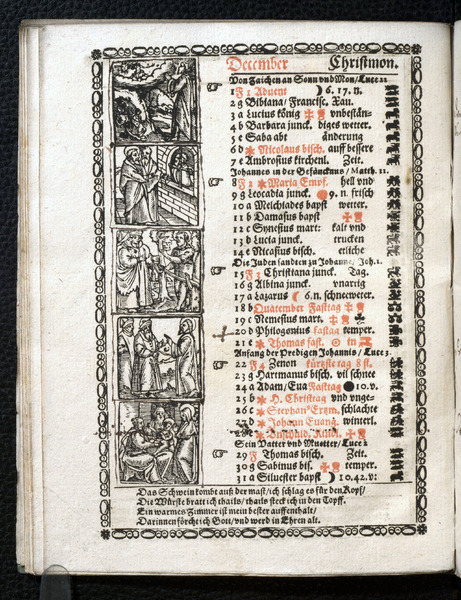 December Christmon.
Von Zaichen an Sonn vnd Mon/ Luce 21
1 F 1 Aduent ☽ 6. 17. n.
2 g Bibiana/ Francisc. Xau.
3 a Lucius könig vnbestän-
4 b Barbara junck. diges wetter.
5 c Saba abt änderung
6 d Nicolaus bisch. auff bessere
7 e Ambrosius kirchenl. Zeit.
Johannes in der Gefüncknus/ Matth. 11.
8 F 2 Maria Empf. hell vnd
9 g Leocadia junck. 9. n. frisch
10 a Melchiades bapst wetter.
11 b Damasus bapst
12 c Synesius mart: kalt vnd
13 d Lucia junck. trucken
14 e Nicasius bisch. etliche
Die Juden sanden zů Johanne/ Joh. 1.
15 F 3 Christiana junck. Tag.
16 g Albina junck. vnartig
17 a Lazarus ☾ 6. n. schneweter.
18 b Quatember Fasttag
19 c Nemesius mart.
20 d Philogonius fastag temper.
21 e Thomas fast. ☉ in
Anfang der Predigen Johannis/ Luce 3.
22 F 4 Zenon kürtzste tag 8 st.
23 g Hartmanus bisch. vil schnee
24 a Adam/ Eua Fasttag 10. v.
25 b H. Christtag vnd vnge-
26 c Stephan Ertzm. schlachte
27 d Johann Euang. winterl.
28 e Vnschuld. Kindl.
Sein Vatter vnd Muotter/ Luce 2
29 F Thomas bisch. Zeit.
30 g Sabinus bis. temper.
31 a Siluester bapst ☽ 10. 42. v:
Das Schwein kombt auß der mast/ ich schlag es für den Kopf/
Die Würste bratt ich thails/ thails steck ich in den Topff.
Ein warmes Zimmer ist mein bester auffenthalt/
Darinnen förcht ich Gott/ vnd werd in Ehren alt.